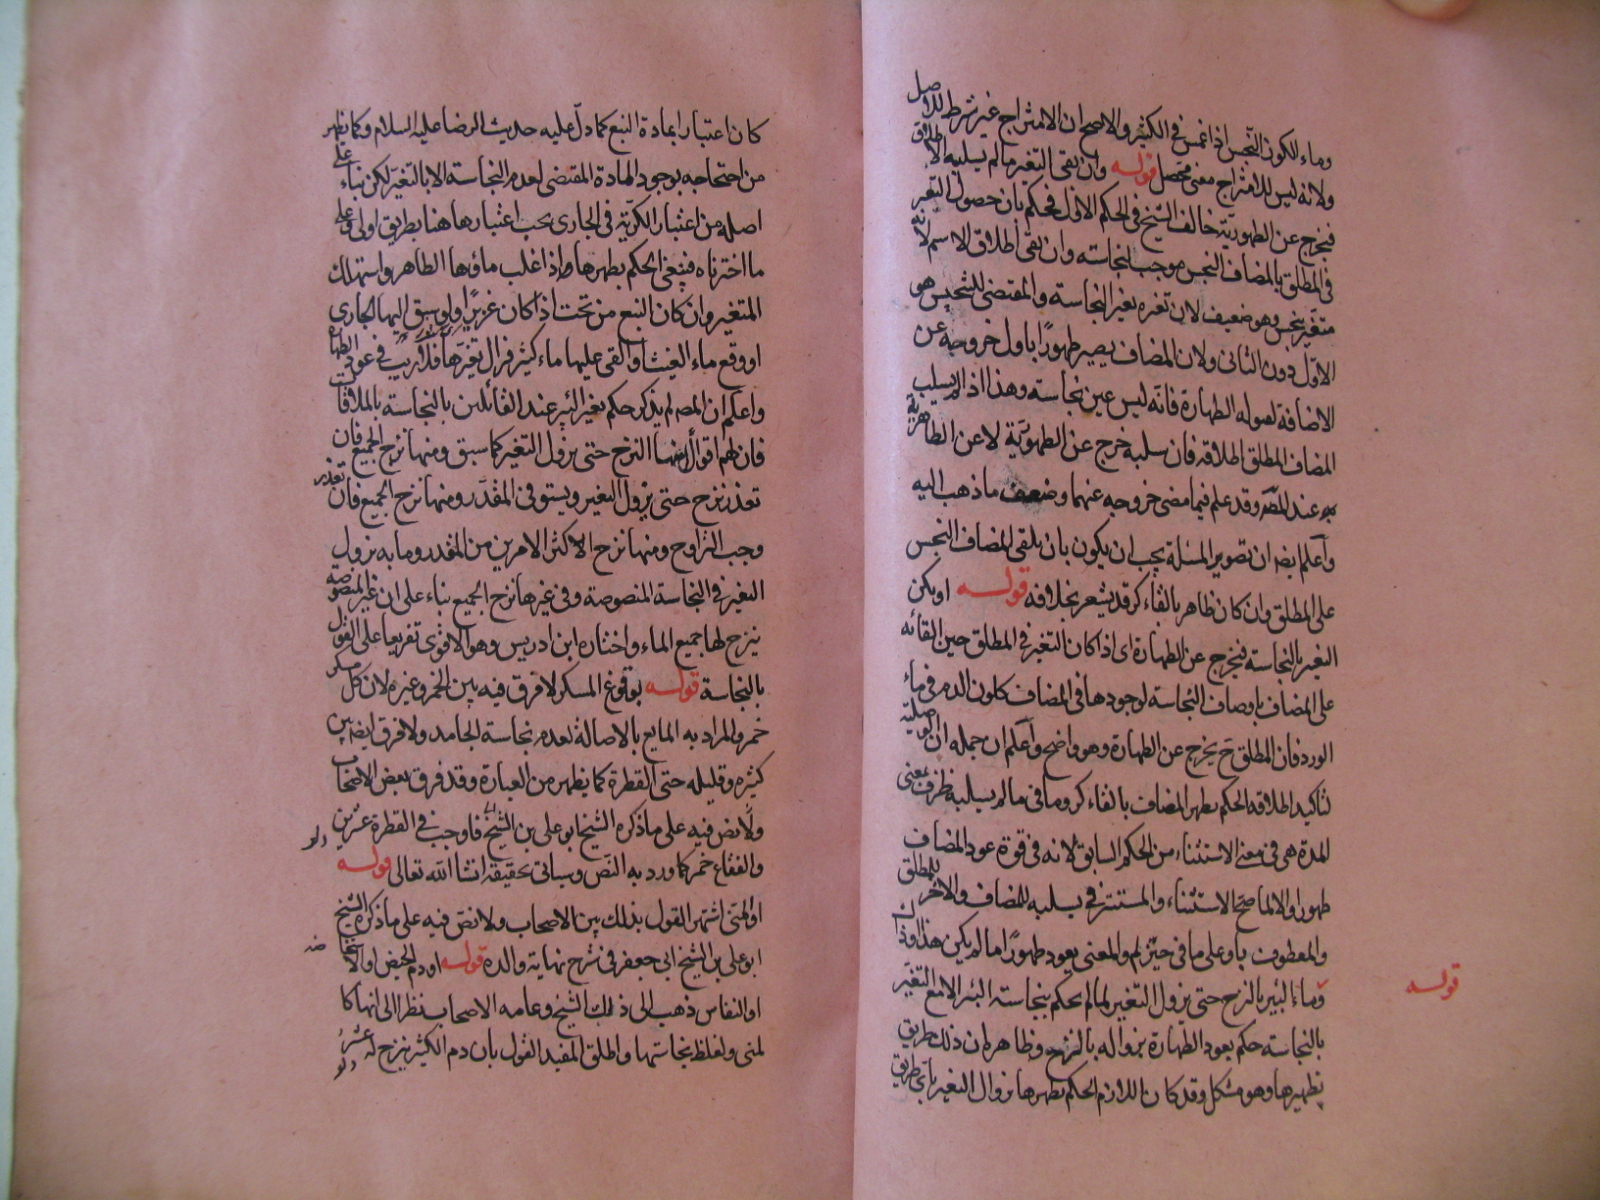 وماء الكوز النجس اذا غمس في الكثير والاصح ان الامتزاج غير شرط للاصل
ولانه ليس للامتزاج معنى محصل قوله وان بقى التغير ما لم يسلبه الاطلاق
فيخرج عن الطهورية خالف الشيخ في الحكم الاول فحكم بان حصول التغير
في المطلق بالمضاف النجس موجب لنجاسته وان بقى اطلاق الاسم لانه
متغير بنجس وهو ضعيف لان تغره بغير النجاسة والمقتضى للتنجيس هو
الاول دون الثانى ولان المضاف يصير طهورًا باول خروجه عن
الاضافة لقبوله الطهارة فانه ليس عين نجاسته وهذا اذا لم يسلب
المضاف المطلق اطلاقه فان سلبه خرج عن الطهورية لا عن الطاهرية
عند المصّ وقد علم فيما مضى خروجه عنهما وضعف ما ذهب اليه
وآعلم ايضا ان تصوير المسئلة يجب ان يكون بان يلقى المضاف النجس
على المطلق وان كان ظاهر بالقاء كر قد يشعر بخلافه قوله او يكن
التغير بالنجاسة فيخرج عن الطهارة اى اذا كان التغير في المطلق حين القائه
على المضاف باوصاف النجاسة لوجودها في المضاف كلون الدم في ماء
الورد فان المطلق ح يخرج عن الطهارة وهو واضح وآعلم ان جملة ان الوصلية
تاكيد لاطلاقه الحكم بطهر المضاف بالقاء كر وما في ما لم يسلبه ظرف بمعنى
المدة هى في معنى الاستثناء من الحكم السابق لانه في قوة عود المضاف
طهورا والا لما صح الاستثناء والمستتر في يسلبه للمضاف والاخر للمطلق
والمعطوف باو على ما في حيّز لم والمعنى يعود طهورًا ما لم يكن هذا او ذاك
قوله
وماء البير بالنزح حتى يزول التغير لما لم يحكم بنجاسته البئر الا مع التغير
بالنجاسة حكم بعود الطهارة بزواله بالنزح وظاهره ان ذلك طريق
تطهيرها وهو مشكل وقد كان اللازم الحكم بطهرها بزوال التغير باى طريق
كان اعتبارا بمادة النبع كما دلّ عليه حديث الرضا عليه السلام وكما يظهر
من احتجاجه بوجود المادة المقتضى لعدم النجاسة الا بالتغير لكن بناء على
اصله من اعتبار الكرّية في الجارى يجب اعتبارها هنا بطريق اولى وعلى
ما اخترناه فينبغى الحكم بطهرها واذا غلب ماؤها الطاهر واستهلك
المتغير وان كان النبع من تحت اذا كان غزيرا ولو سبق اليها الجارى
او وقع ماء الغيث او القى عليها ماء كثير فزال تغيرها فلا ريب في عود الطهارة
واعلم ان المصّ لم يذكر حكم تغير البئر عند القائلين بالنجاسة بالملاقات
فان لهم اقوالا منها النزح حتى يزول التغير كما سبق ومنها نزح الجميع فان
تعذر نزح حتى يزول التغير ويستوفى المقدّر ومنها نزح الجميع فان تعذر
وجب التراوح ومنها نزح الاكثر الامرين من المقدر وما به يزول
التغير في النجاسة المنصوصة وفي غيرها نزح الجميع بناء على ان غير المنصوصة
ينزح لها جميع الماء واختاره ابن ادريس وهو الاقوى تفريعا على القول
بالنجاسة قوله بوقوع المسكر لا فرق فيه بين الخمر وغيره لان كل مسكر
خمر والمراد به المايع بالاصالة لعدم نجاسة الجامد ولا فرق ايضا بين
كثيره وقليله حتى القطرة كما يظهر من العبارة وقد فرق بعض الاصحاب
ولا نص فيه على ما ذكره الشيخ ابو على بن الشيخ فاوجب في القطرة عشرين دلو
والفقاع خمر كما ورد به النص وسياتى تحقيقه انشا الله تعالى قوله
او المنى اشتهر القول بذلك بين الاصحاب ولا نص فيه على ما ذكره الشيخ
ابو على بن الشيخ ابي جعفر في شرح نهاية والده قوله او دم الحيض او الاستحاضه
او النفاس ذهب الى ذلك الشيخ وعامه الاصحاب نظرا الى انها كا
لمنى ولغلظ نجاستها واطلق المفيد القول بان دم الكثير ينزح له عشر دلو